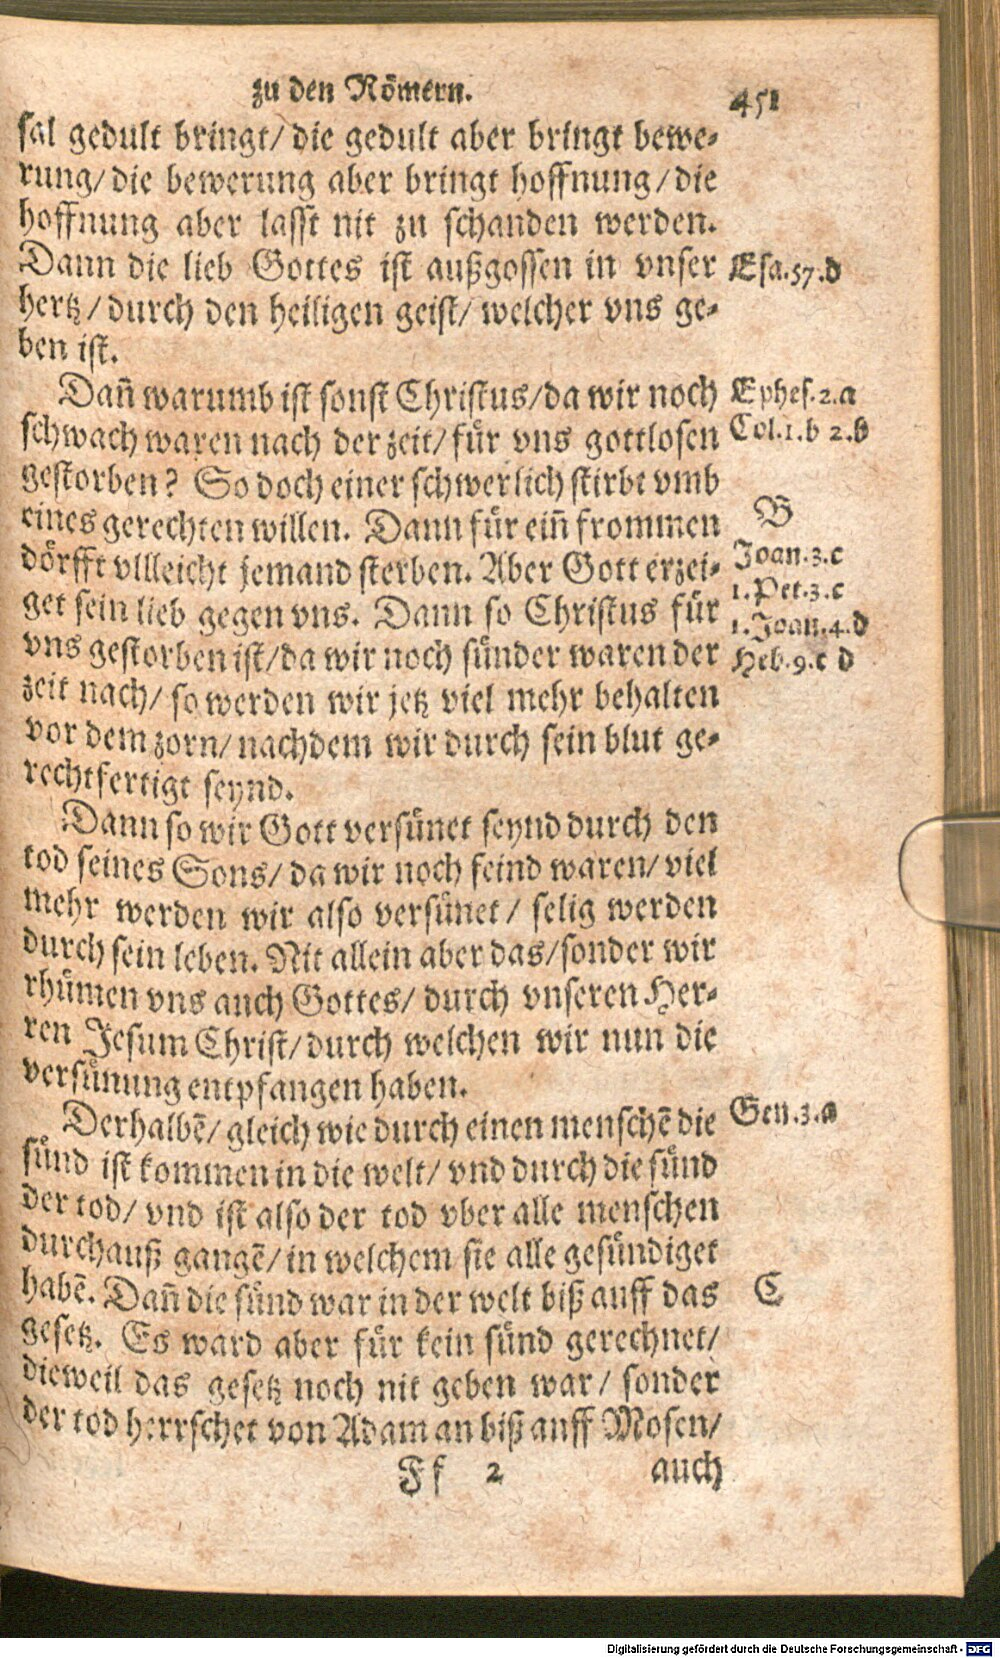 zu den Römern. 451
sal gedult bringt/ die gedult aber bringt bewe-
rung/ die bewerung aber bringt hoffnung/ die
hoffnung aber lasst nit zu schanden werden.
Dann die lieb Gottes ist außgossen in vnser
hertz/ durch den heiligen geist/ welcher vns ge-
ben ist.
Dañ warumb ist sonst Christus/ da wir noch
schwach waren nach der zeit/ für vns gottlosen
gestorben? So doch einer schwerlich stirbt vmb
eines gerechten willen. Dann für eiñ frommen
dörfft vllleicht jemand sterben. Aber Gott erzei-
get sein lieb gegen vns. Dann so Christus für
vns gestorben ist/ da wir noch sünder waren der
zeit nach/ so werden wir jetz viel mehr behalten
vor dem zorn/ nachdem wir durch sein blut ge-
rechtfertigt seynd.
Dann so wir Gott versünet seynd durch den
tod seines Sons/ da wir noch feind waren/ viel
mehr werden wir also versünet/ selig werden
durch sein leben. Nit allein aber das/ sonder wir
rhümen vns auch Gottes/ durch vnseren Her-
ren Jesum Christ/ durch welchen wir nun die
versünung entpfangen haben.
Derhalbẽ/ gleich wie durch einen menschẽ die
sünd ist kommen in die welt/ vnd durch die sünd
der tod/ vnd ist also der tod vber alle menschen
durchauß gangẽ/ in welchem sie alle gesündiget
habẽ. Dañ die sünd war in der welt biß auff das
gesetz. Es ward aber für kein sünd gerechnet/
dieweil das gesetz noch nit geben war/ sonder
der tod herrschet von Adam an biß auff Mosen/
Ff 2 auch
Esa.57.d
Ephes.2.a
Col.1.b 2.b
B
Joan.3.c
1.Pet.3.c
1.Joan.4.d
Heb.9.c d
Gen.3.a
C
Digitalisierung gefördert durch die Deutsche Forschungsgemeinschaft - DFG